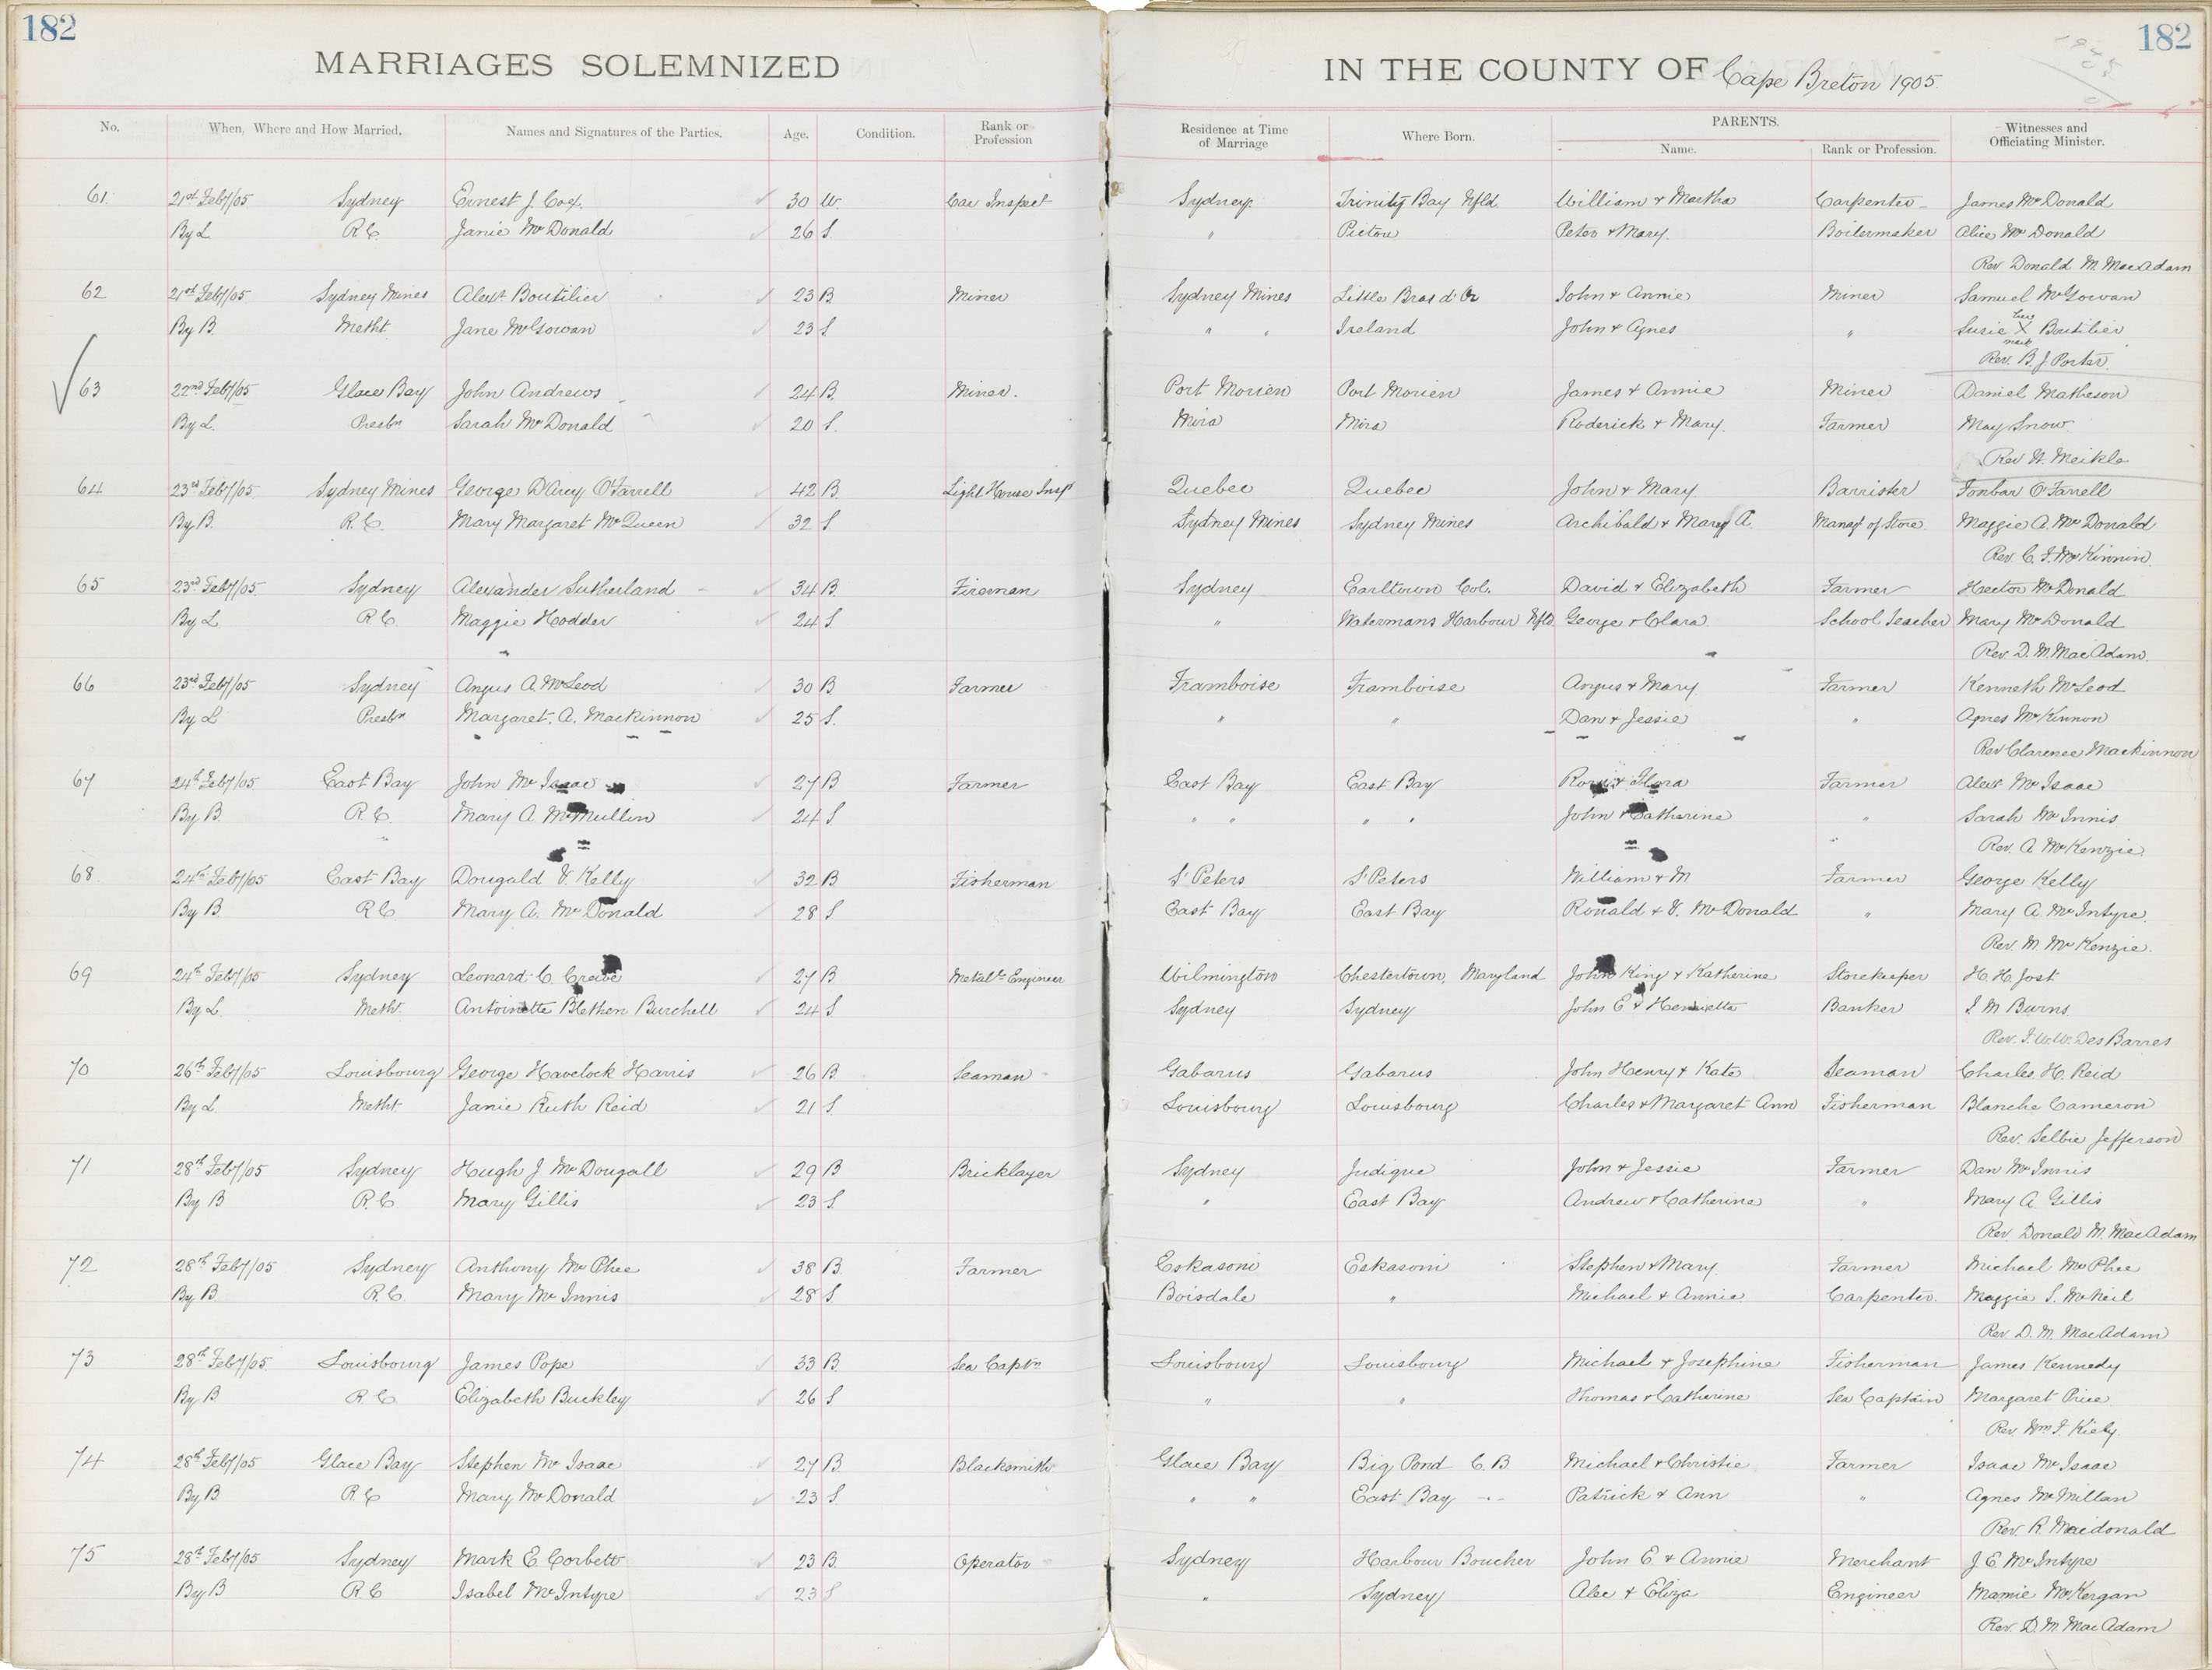 182 182
MARRIAGES SOLEMNIZED IN THE COUNTY OF Cape Breton 1905
No. When, Where and How Married. Names and Signatures of the Parties. Age. Condition. Rank or Profession Residence at Time of Marriage Where Born. PARENTS. Name. Rank or Profession. Witnesses and Officiating Minister.
61 21st Feby/05 Sydney Ernest J. Cox 30 W. Car Inspect Sydney Trinity Bay Nfld William & Martha Carpenter James McDonald
By L R.C. Janie McDonald 26 S. " Pictou Peter & Mary Boilermaker Alice McDonald
Rev Donald M. MacAdam
62 21st Feby/05 Sydney Mines Alexr Boutilier 23 B. Miner Sydney Mines Little Bras d'Or John & Annie Miner Samuel McGowan
By B. Metht Jane McGowan 23 S " " Ireland John & Agnes " Susie her X mark Boutilier
Rev. B. J. Porter.
63 22nd Feby/05 Glace Bay John Andrews 24 B. Miner. Port Morien Port Morien James & Annie Miner Daniel Matheson
By L. Presbn Sarah McDonald 20 S. Mira Mira Roderick & Mary Farmer May Snow
Rev W. Meikle
64 23rd Feby/05 Sydney Mines George D'Arcy O'Farrell 42 B. Light House Inspt Quebec Quebec John & Mary Barrister O'Farrell
By B. R.C. Mary Margaret McQueen 32 S. Sydney Mines Sydney Mines Archibald & Mary A. Managr of Store Maggie A. McDonald
Rev. C. F. McKinnin
65 23rd Feby/05 Sydney Alexander Sutherland 34 B. Fireman Sydney Earltown Col. David & Elizabeth Farmer Hector McDonald
By L R.C. Maggie Hodder 24 S. " Watermans Harbour Nfld. George & Clara School Teacher Mary McDonald
Rev. D. M. MacAdam.
66 23rd Feby/05 Sydney Angus A. McLeod 30 B. Farmer Framboise Framboise Angus & Mary Farmer Kenneth McLeod
By L Presbn Margaret. A. Mackinnon 25 S. " " Dan & Jessie " Agnes McKinnon
Rev Clarence Mackinnon
67 24th Feby/05 East Bay John McIsaac 27 B Farmer East Bay East Bay & Flora Farmer Alexr McIsaac
By B. R.C. Mary A. McMullin 24 S. " " " " John & Catherine " Sarah McInnis
Rev. A. McKenzie.
68 24th Feby/05 East Bay Dougald V. Kelly 32 B Fisherman St Peters St Peters William & M Farmer George Kelly
By B. R.C. Mary A. McDonald 28 S East Bay East Bay Ronald & V. McDonald " Mary A. McIntyre.
Rev. M. McKenzie.
69 24th Feby/05 Sydney Leonard C. 27 B. Engineer Wilmington Chestertown, Maryland John King & Katherine Storekeeper H. H. Jost
By L. Metht Antoinette Blethen Burchell 24 S Sydney Sydney John E & Henrietta Banker M Burns
Rev. F. W. W. DesBarres
70 26th Feby/05 Louisbourg George Havelock Harris 26 B. Seaman Gabarus Gabarus John Henry & Kate Seaman Charles. H. Reid
By L. Metht Janie Ruth Reid 21 S. Louisbourg Louisbourg Charles & Margaret Ann Fisherman Blanche Cameron
Rev. Selbie Jefferson
71 28th Feby/05 Sydney Hugh J. McDougall 29 B Bricklayer Sydney Judique John & Jessie Farmer Dan McInnis
By B R.C. Mary Gillis 23 S. " East Bay Andrew & Catherine " Mary A. Gillis
Rev Donald M. MacAdam
72 28th Feby/05 Sydney Anthony McPhee 38 B. Farmer Eskasoni Eskasoni Stephen & Mary Farmer Michael McPhee
By B. R.C. Mary McInnis 28 S. Boisdale " Michael & Annie Carpenter Maggie S. McNeil
Rev. D. M. MacAdam
73 28th Feby/05 Louisbourg James Pope 33 B. Sea Captn Louisbourg Louisbourg Michael & Josephine Fisherman James Kennedy
By B. R.C. Elizabeth Buckley 26 S " " Thomas & Catherine Sea Captain Margaret Price
Rev. Wm F. Kiely
74 28th Feby/05 Glace Bay Stephen McIsaac 27 B. Blacksmith Glace Bay Big Pond C.B. Michael & Christie Farmer Isaac McIsaac
By B. R.C Mary McDonald 23 S. " " East Bay Patrick & Ann " Agnes McMillan
Rev. R. Macdonald
75 28th Feby/05 Sydney Mark E. Corbett 23 B. Operator Sydney Harbour Boucher John E. & Annie Merchant J. E. McIntyre
By B R.C Isabel McIntyre 23 S " Sydney Alec & Eliza Engineer Mamie McKergan
Rev. D. M. MacAdam